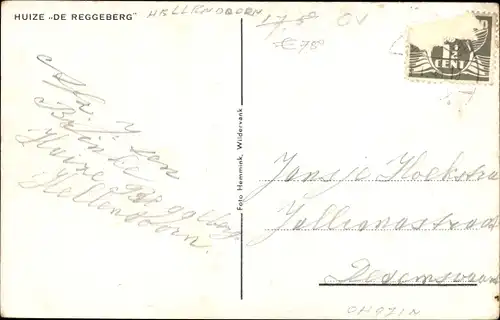 HUIZE „DE REGGEBERG"
HELLENDOORN
17,50
CV
€ 7,50
½
CENT
Afz. Y. van
Huize Reggeberg
Hellendoorn.
Foto Hemmink, Wildervank
Jansje Hoekstra
Jullianastraat
Dedemsvaart
OH971N